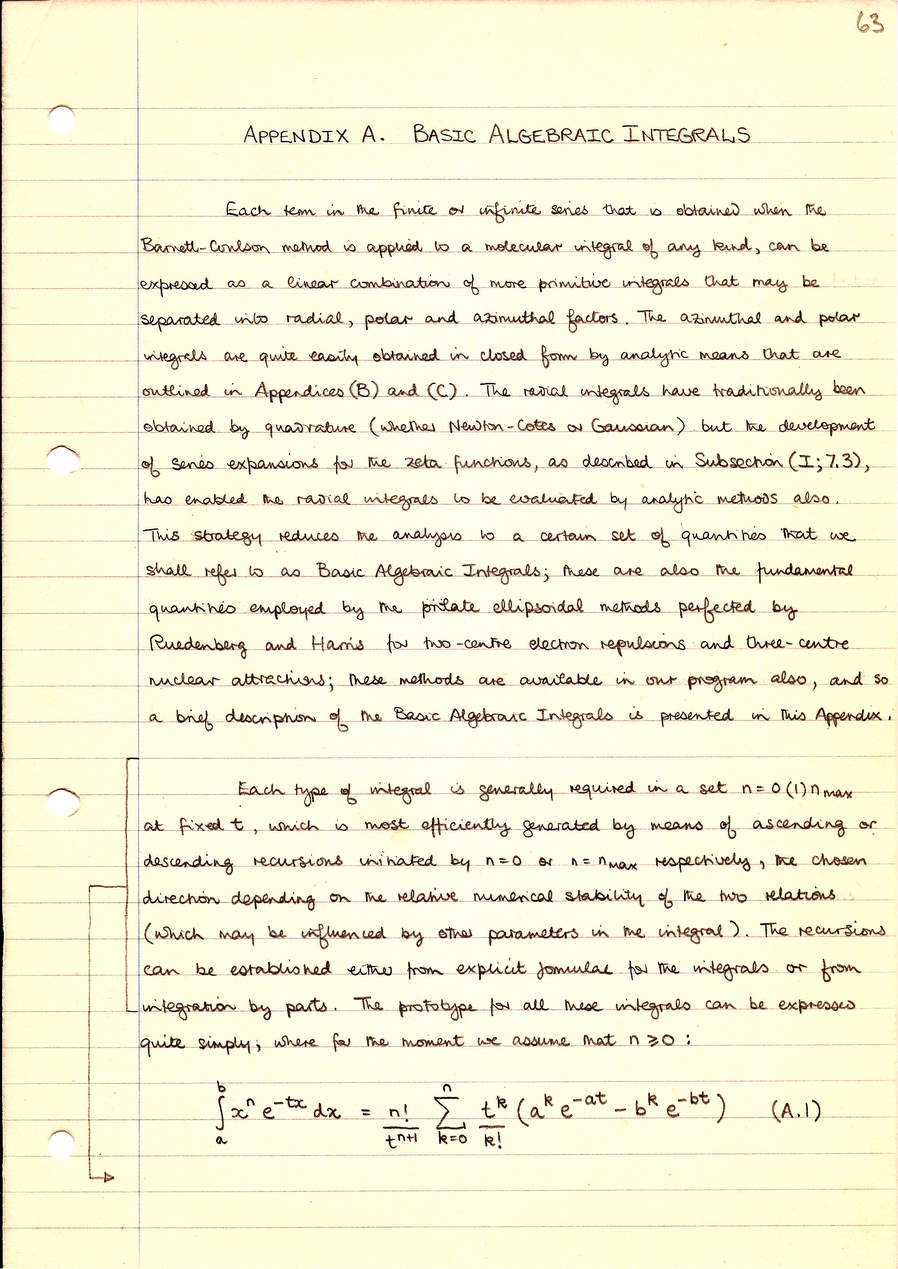 63
APPENDIX A. BASIC ALGEBRAIC INTEGRALS
Each term in the finite or infinite series that is obtained when the
Barnett-Coulson method is applied to a molecular integral of any kind, can be
expressed as a linear combination of more primitive integrals that may be
separated into radial, polar and azimuthal factors. The azimuthal and polar
integrals are quite easily obtained in closed form by analytic means that are
outlined in Appendices (B) and (C). The radial integrals have traditionally been
obtained by quadrature (whether Newton-Cotes or Gaussian) but the development
of series expansions for the zeta functions, as described in Subsection (I; 7.3),
has enabled the radial integrals to be evaluated by analytic methods also.
This strategy reduces the analysis to a certain set of quantities that we
shall refer to as Basic Algebraic Integrals; these are also the fundamental
quantities employed by the prolate ellipsoidal methods perfected by
Ruedenberg and Harris for two-centre electron repulsions and three-centre
nuclear attractions; these methods are available in our program also, and so
a brief description of the Basic Algebraic Integrals is presented in this Appendix.
Each type of integral is generally required in a set n = 0 (1) n max
at fixed t, which is most efficiently generated by means of ascending or
descending recursions initiated by n=0 or n = n max respectively, the chosen
direction depending on the relative numerical stability of the two relations
(which may be influenced by other parameters in the integral). The recursions
can be established either from explicit formulae for the integrals or from
integration by parts. The prototype for all these integrals can be expressed
quite simply; where for the moment we assume that n ≥ 0 :
∫_a^b x^n e^{-tx} dx = n!/t^{n+1} ∑_{k=0}^n t^k/k! (a^k e^{-at} - b^k e^{-bt}) (A.1)